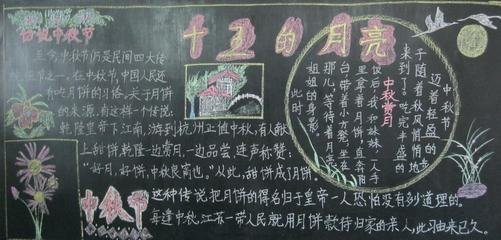 十五的月亮
话说中秋节
至今,中秋节仍是民间四大传
统佳节之一。在中秋节,中国人还
有吃月饼的习俗。关于月饼
的来源,有这样一个传说:
乾隆皇帝下江南,游到杭州正值中秋,有人献
上甜饼,乾隆一边赏月,一边品尝,连声称赞:
“好月,好饼,中秋良宵也。”从此,甜饼成了月饼。
这种传说把月饼的得名归于皇帝一人恐怕没有多少道理的。
每逢中秋,江苏一带人民就用月饼款待归家的亲人,此习由来已久。
中秋节
中秋赏月
中秋节
迈着轻盈的
子随着秋风悄悄地
来到了。吃完丰盛的
饭后,我和妹妹一人手
里拿着月饼,直奔阳
台带着小凳,坐在
那儿,等待着月亮
姐姐的身影。
此时